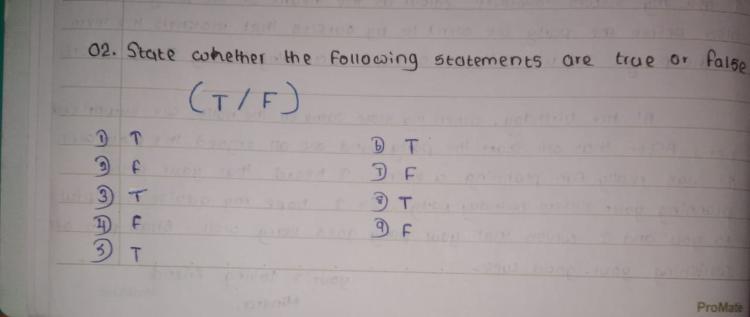 02. State whether the following statements are true or false
(T/F)
① T
② F
③ T
④ F
⑤ T
⑥ T
⑦ F
⑧ T
⑨ F
your's loving friend
ProMate